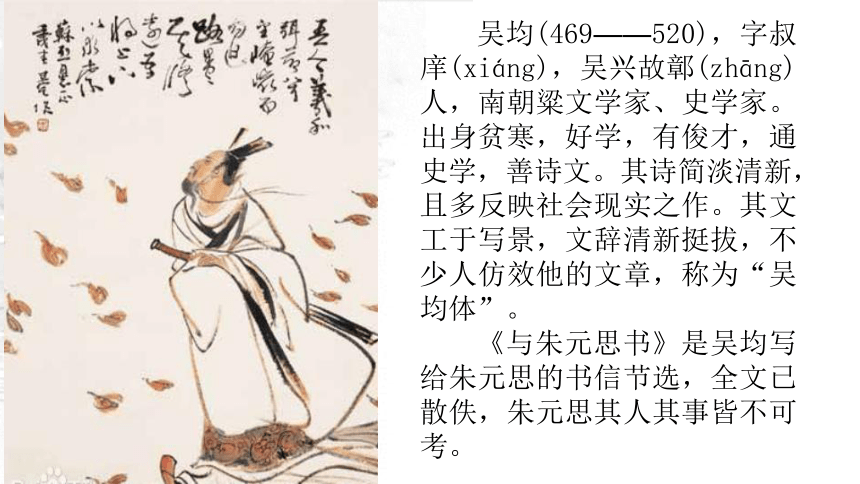 吾令羲和
弭节兮
望崦嵫而
勿迫
路曼曼
其修
远兮吾
将上下
以求索
吴均(469——520)，字叔
庠(xiáng)，吴兴故鄣(zhāng)
人，南朝粱文学家、史学家。
出身贫寒，好学，有俊才，通
史学，善诗文。其诗简淡清新，
且多反映社会现实之作。其文
工于写景，文辞清新挺拔，不
少人仿效他的文章，称为“吴
均体”。
《与朱元思书》是吴均写
给朱元思的书信节选，全文已
散佚，朱元思其人其事皆不可
考。